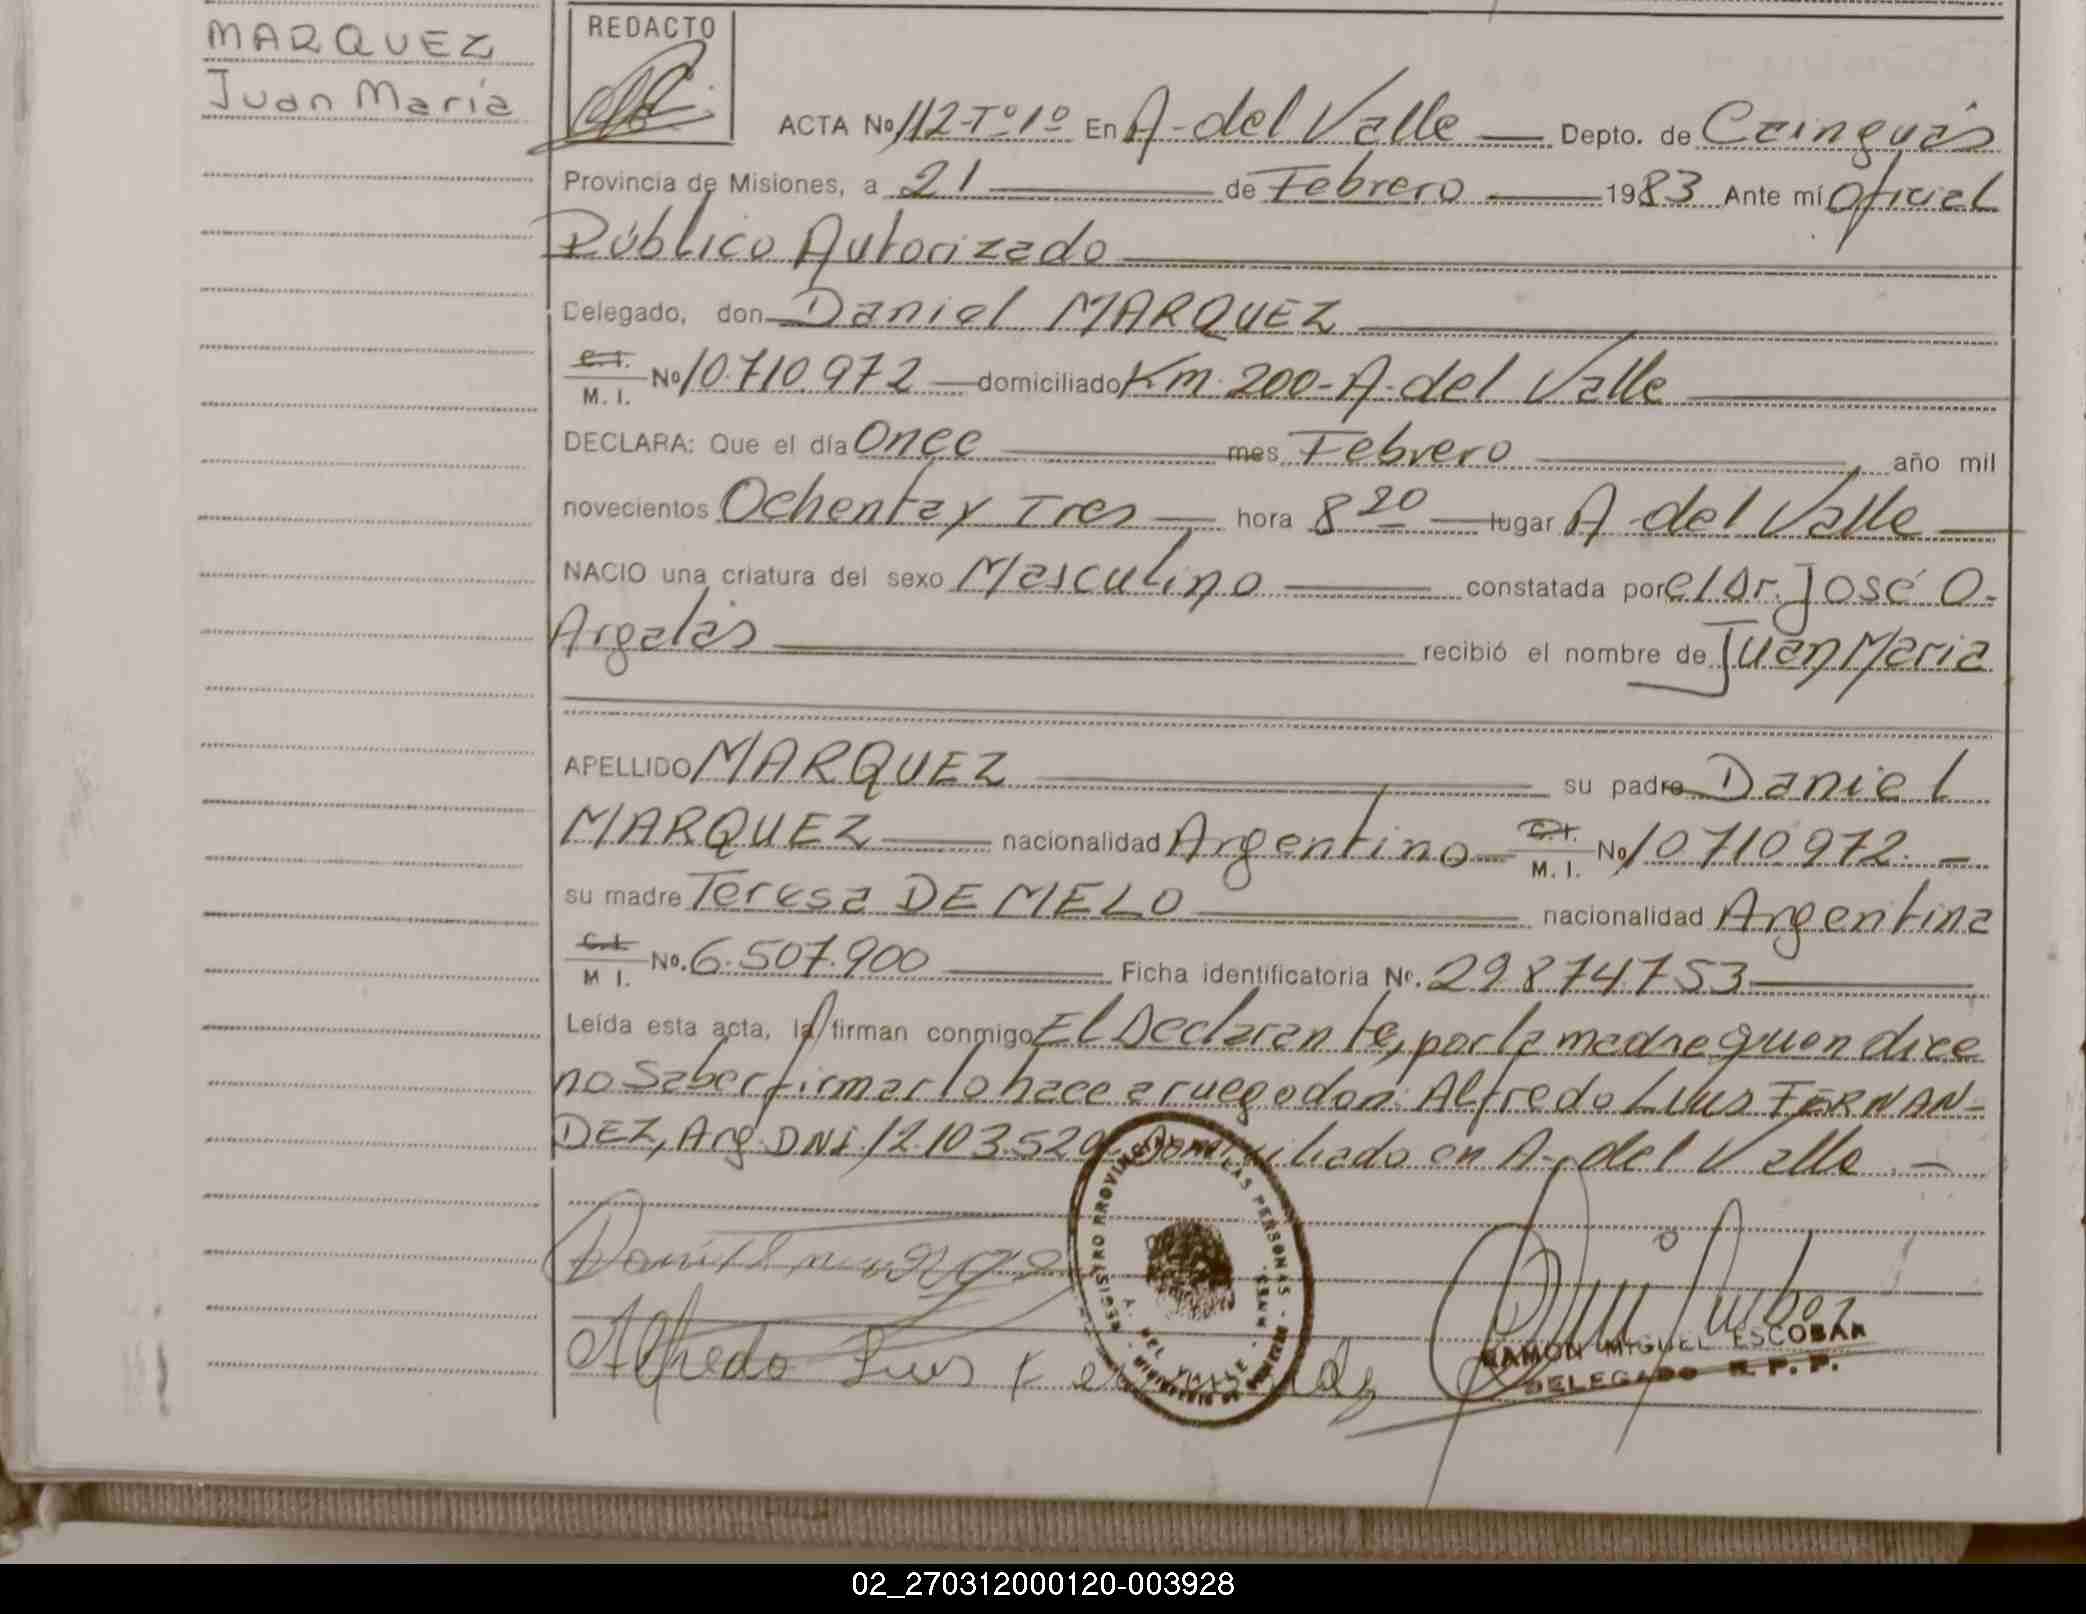 MARQUEZ
Juan María
REDACTO
ACTA No 112-Tº1º En A-del Valle Depto. de Cainguás
Provincia de Misiones, a 21 de Febrero 1983 Ante mí Oficial
Público Autorizado
Delegado, don Daniel MARQUEZ
C.I.
M. I. No 10.710.972 domiciliado Km. 200-A-del Valle
DECLARA: Que el día Once mes Febrero año mil
novecientos Ochenta y Tres hora 8 20 lugar A-del Valle
NACIO una criatura del sexo Masculino constatada por el Dr. José O.
Argalás recibió el nombre de Juan María
APELLIDO MARQUEZ su padre Daniel
MARQUEZ nacionalidad Argentino C.I.
M. I. No 10.710.972.-
su madre Teresa DE MELO nacionalidad Argentina
C.I.
M I. No. 6.507.900 Ficha identificatoria No. 29874753
Leída esta acta, la firman conmigo El Declarante, por la madre quien dice
no Saber firmar lo hace a ruego don: Alfredo Luis FERNAN-
DEZ, Arg. DNI. 12.103.520 domiciliado en A-del Valle.-
REGISTRO PROVINCIAL DE LAS PERSONAS - MISIONES
A. DEL VALLE
Alfredo Luis Fernandez
RAMON MIGUEL ESCOBAR
DELEGADO R. P. P.
02_270312000120-003928